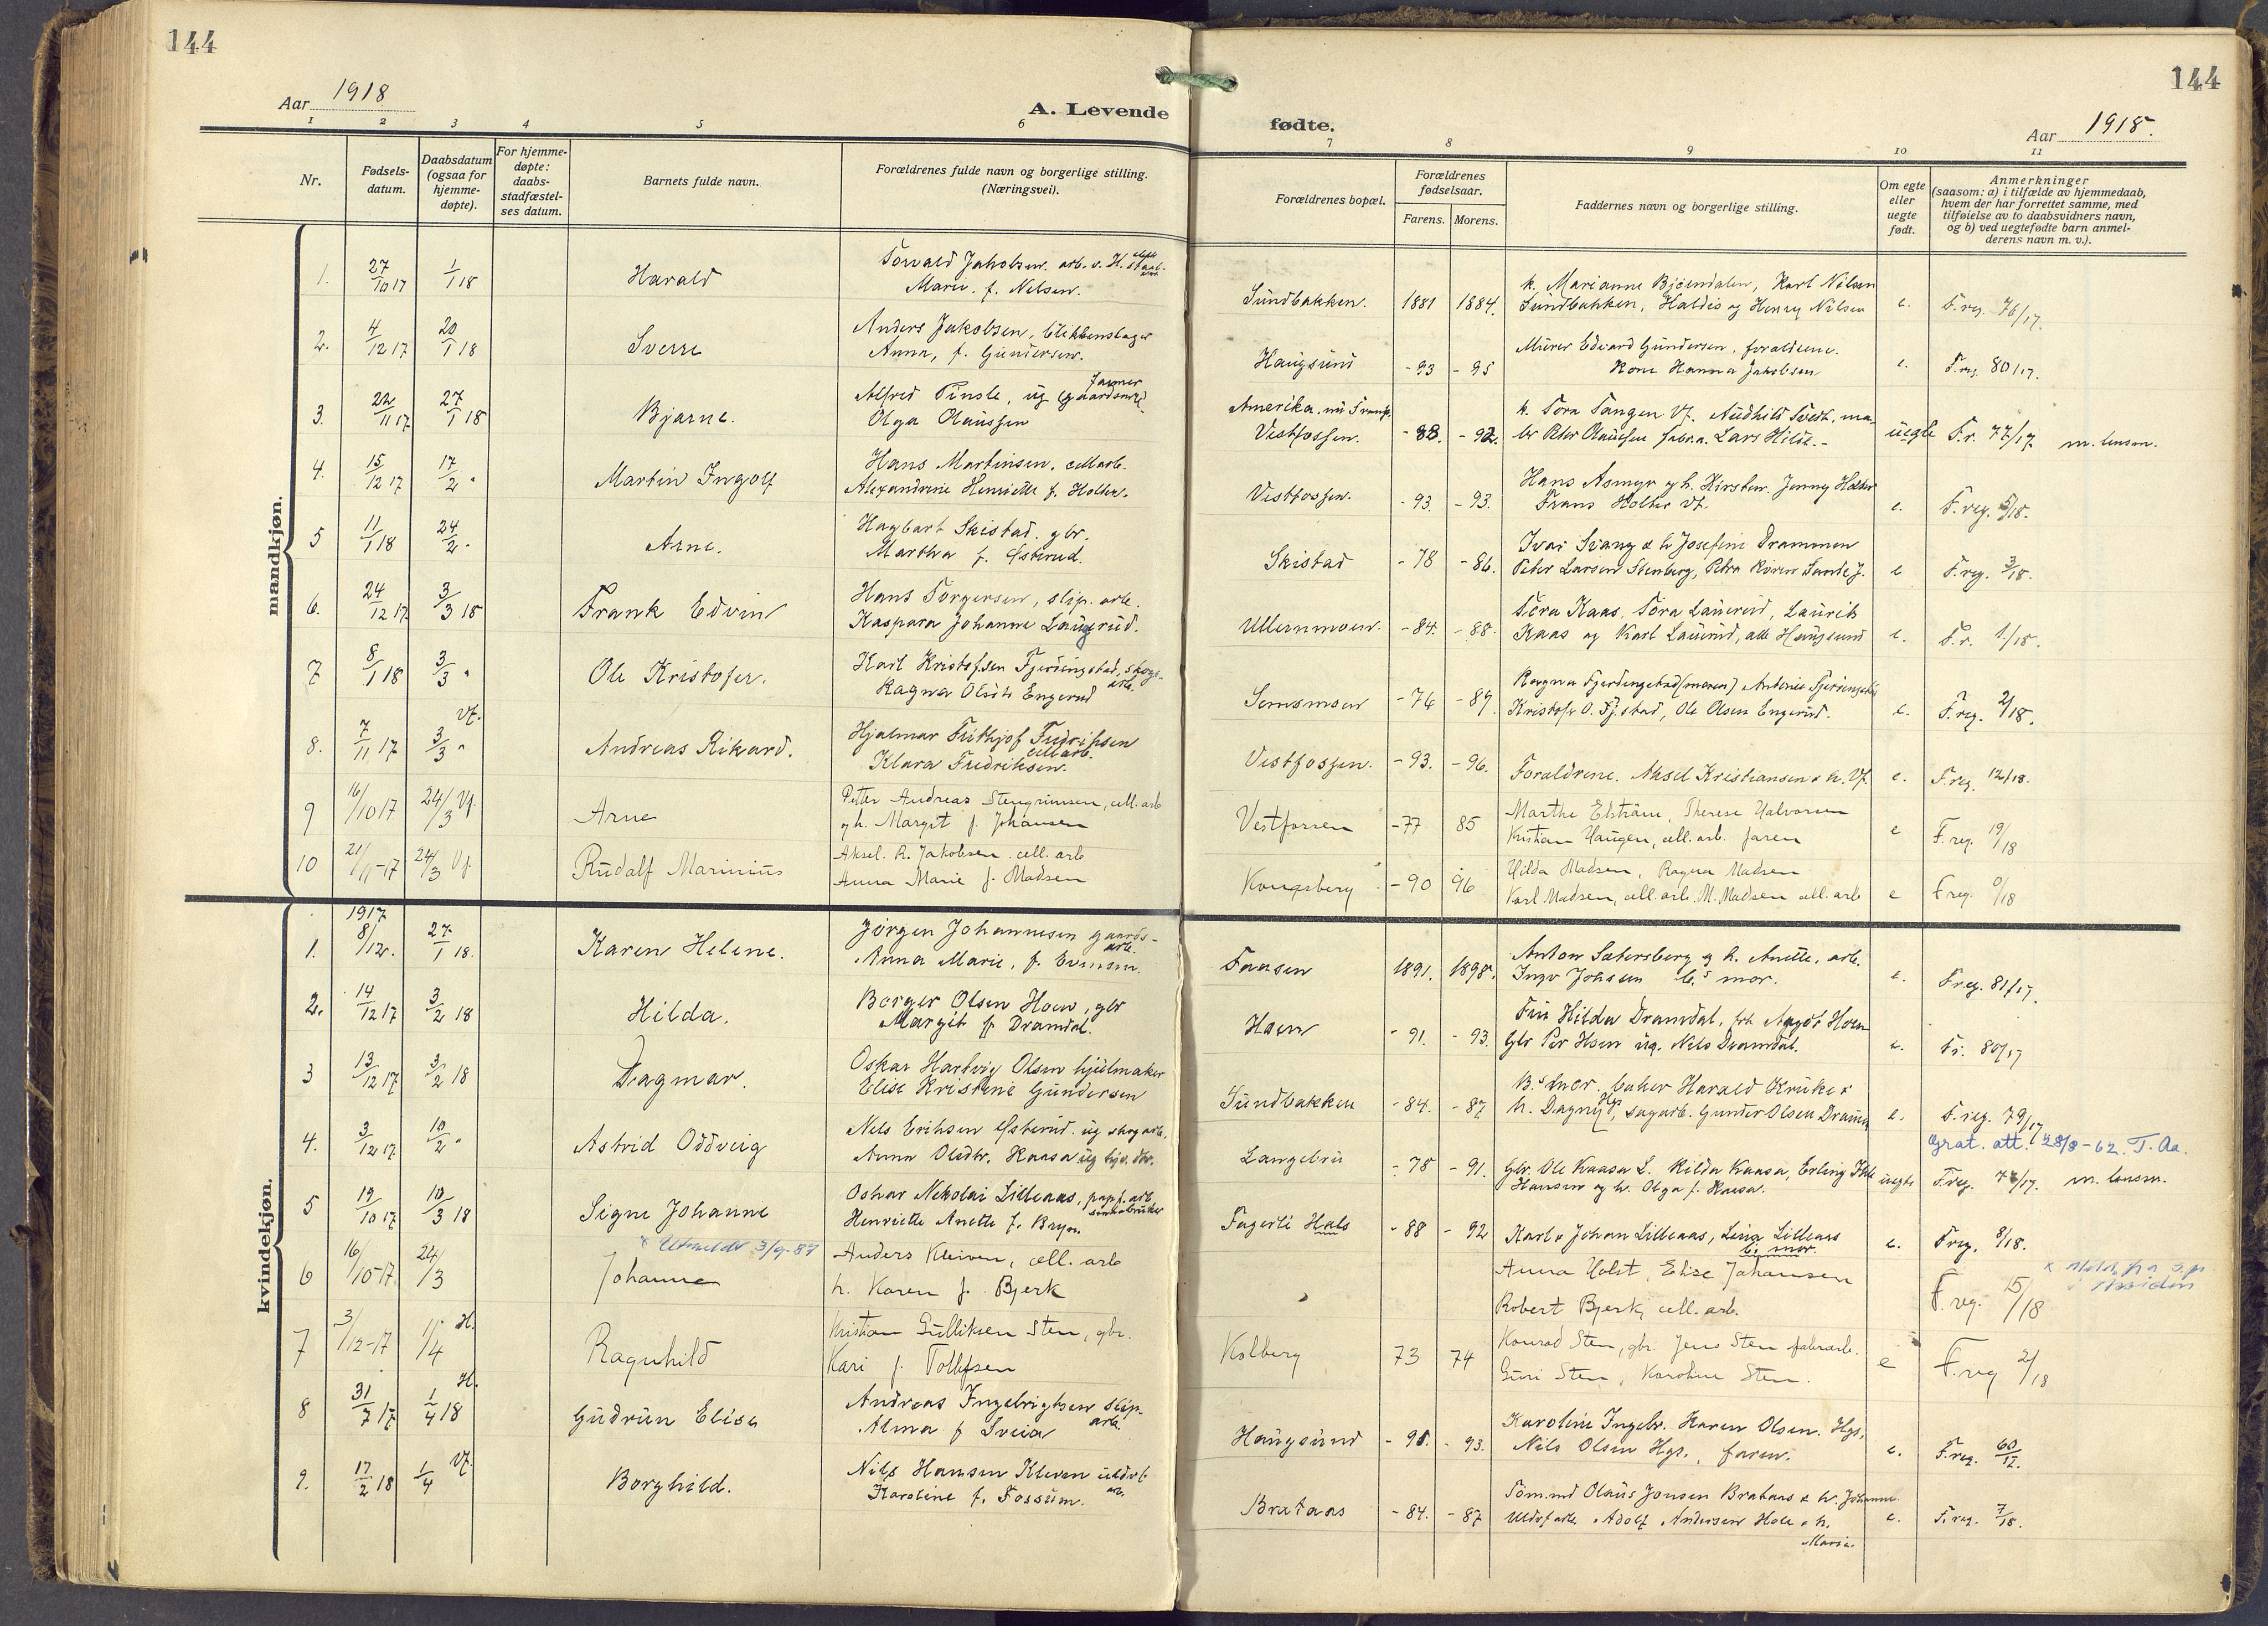 144
Aar 1918
A. Levende
1 2 3 4 5 6
Nr.
Fødsels-
datum.
Daabsdatum
(ogsaa for
hjemme-
døpte).
For hjemme-
døpte:
daabs-
stadfæstel-
ses datum.
Barnets fulde navn.
Forældrenes fulde navn og borgerlige stilling.
(Næringsvei).
mandkjøn.
1. 27/10 17 1/1 18 Harald Torvald Jakobsen. arb. v. H.
Marie. f. Nilsen.
2. 4/12 17 20/1 18 Sverre Anders Jakobsen, blikkenslager
Anna, f. Gundersen.
3. 22/11 17 27/1 18 Bjarne. Alfred Tinsle, ug
Olga Olaussen
4. 15/12 17 17/2 " Martin Ingolf Hans Martinsen. cellarb.
Alexandrine Henriette f. Holter.
5 11/1 18 24/2 " Arne. Hagbart Skistad. gbr.
Martha f. Østerud.
6. 24/12 17 3/3 18 Frank Edvin Hans Torgersen, slip. arb.
Kaspara Johanne Laugerud.
7 8/1 18 3/3 " Ole Kristofer. Karl Kristofsen Fjerdingstad, skogs-
arb.
Ragna Olsdtr Engerud
8. 7/11 17 3/3 " Vf. Andreas Rikard. Hjalmar Frithjof Fredriksen
cellarb.
Klara Fredriksen.
9 16/10 17 24/3 Vf. Arne Petter Andreas Stengrimsen, cell. arb
og h. Margit f. Johansen
10 21/11-17 24/3 Vf Rudolf Marinius Aksel. R. Jakobsen. cell. arb
Anna Marie f. Madsen
kvindekjøn.
1917
1. 8/12. 27/1 18. Karen Helene. Jørgen Johannesen gaards-
arb.
Anna Marie, f. Evensen.
2. 14/12 17 3/2 18 Hilda. Borger Olsen Hoen, gbr
Margit f. Dramdal.
3 13/12 17 3/2 18 Dagmar. Oskar Hartvig Olsen hjulmaker
Elise Kristine Gundersen
4. 3/12 17 10/2 " Astrid Oddveig Nils Eriksen Østerud. ug skog arb.
Anna Olsdtr. Kaasa ug
5 19/10 17 10/3 18 Signe Johanne Oskar Nikolai Lilleaas, papf. arb.
Henriette Anette f. Bryn.
x Utmeldt 3/9-87
6 16/10-17 24/3 Johanne Anders Kleiven, cell. arb
h. Karen f. Bjerk
7 3/12-17 1/4 H. Ragnhild Kristian Gulliksen Sten, gbr.
Kari f. Tollefsen
8 31/7 17 1/4 18 H. Gudrun Elise Andreas Ingebrigtsen slip.
arb.
Alma f Sveia
9. 17/2 18 1/4 Vf. Borghild. Nils Hansen Kleven
Karoline f. Fossum.
144
fødte.
Aar 1918.
7 8 9 10 11
Forældrenes bopæl.
Forældrenes
fødselsaar.
Farens. Morens.
Faddernes navn og borgerlige stilling.
Om egte
eller
uegte
født.
Anmerkninger
(saasom: a) i tilfælde av hjemmedaab,
hvem der har forrettet samme, med
tilføielse av to daabsvidners navn,
og b) ved uegtefødte barn anmel-
derens navn m. v.).
k. Marianne Bjørndalen, Karl Nilsen
Sundbakken. 1881 1884. Sundbakken, Haldis og Henry Nilsen e. F. reg. 76/17.
Murer Edvard Gundersen, forældrene.
Haugsund - 93 - 95 Kone Hanna Jakobsen e. F. reg. 80/17.
Amerika, nu k. Tora Tangen Vf. Audhild Tveit, ma-
Vestfossen. - 88. - 92. ler Peter Olaussen fabr.a. Lars Hilde.- uegte F.r. 77/17 m. lensm.
Hans Asmyr og h. Kirsten. Jenny Holter
Vestfossen. - 93. - 93. Frans Holter Vf. e. F. reg. 5/18.
Ivar Svang & h Josefine Drammen
Skistad - 78 - 86. Peter Larsen Stenberg, Petra Karen Sande J. e F. reg. 3/18.
Tora Kaas, Tora Lauerud, Laurits
Ullernmoen. - 84. - 88. Kaas og Karl Lauerud, alle Haugsund e. F.r. 1/18.
Ragna Fjerdingstad (moren) Antonie Fjerdingstad
Semsmoen - 76 - 89. Kristofer O. Fj.stad, Ole Olsen Engerud. e. F. reg. 2/18.
Vestfossen. - 93. - 96. Forældrene. Aksel Kristiansen & h. Vf. e. F. reg. 12/18.
Marthe Elstrøm, Therese Halvorsen
Vestfossen - 77 85 Kristian Haugen, cell. arb. faren e F. reg. 19/18
Hilda Madsen, Ragna Madsen
Kongsberg - 90 96 Karl Madsen, cell. arb. M. Madsen cell. arb e F reg. 9/18
Anton Sætersberg og h. Anette, arb.
Faasen 1891. 1898. Inga Johnsen b.s mor. e. F reg. 81/17.
Fru Hilda Dramdal, frk Aagot Hoen
Hoen - 91. - 93. Gbr Per Hoen ug. Nils Dramdal. e. Fr. 80/17
B.s mor. baker Harald Kruke &
Sundbakken - 84. - 87 h. Dagny Hgs, sagarb. Gunder Olsen Dramm e. F. reg. 79/17
Grat. att. 28/8-62. T. Aa.
Langebru - 78 - 91. Gbr. Ole Kaasa L. Hilda Kaasa, Erling
Hansen og h. Olga f. Kaasa. uegte F. reg. 77/17. m. lensm.
Fagerli Hals - 88 - 92 Karl & Johan Lilleaas, Lina Lilleaas
b. mor. e. F reg. 8/18.
Anna Holst, Elise Johansen
Robert Bjerk, cell. arb. F. reg. 15/18
Konrad Sten, gbr. Jens Sten fabrarb.
Kolberg 73 74 Guri Sten, Karoline Sten. e F. reg 2/18
Karoline Ingebr. Karen Olsen. Hgs,
Haugsund - 91. - 93. Nils Olsen Hgs., faren. e. F. reg. 60/17.
Tom.md Olaus Jonsen Brataas & h. Johanne
Brataas - 84. - 87 Uldvf arb. Adolf Andersen Hole & h.
Marie. e. F. reg. 7/18.